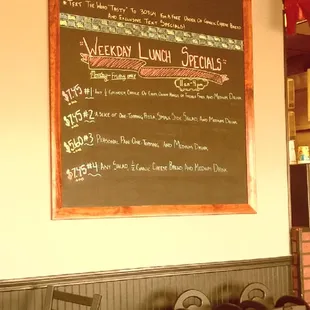 *Text The Word "Tasty" To 30364 For A Free Order Of Garlic Cheese Bread
And Exclusive Text Specials!
Weekday Lunch Specials
Monday-Friday
11am-3pm
$7.45 #1 Any
Medium Drink
$7.45 #2 A Slice of One-Topping Pizza, Small Side Salad, And Medium Drink
$5.60 #3 Personal Pan One-Topping And Medium Drink
$7.45 #4 Any Salad, 1/2 Garlic Cheese Bread, And Medium Drink